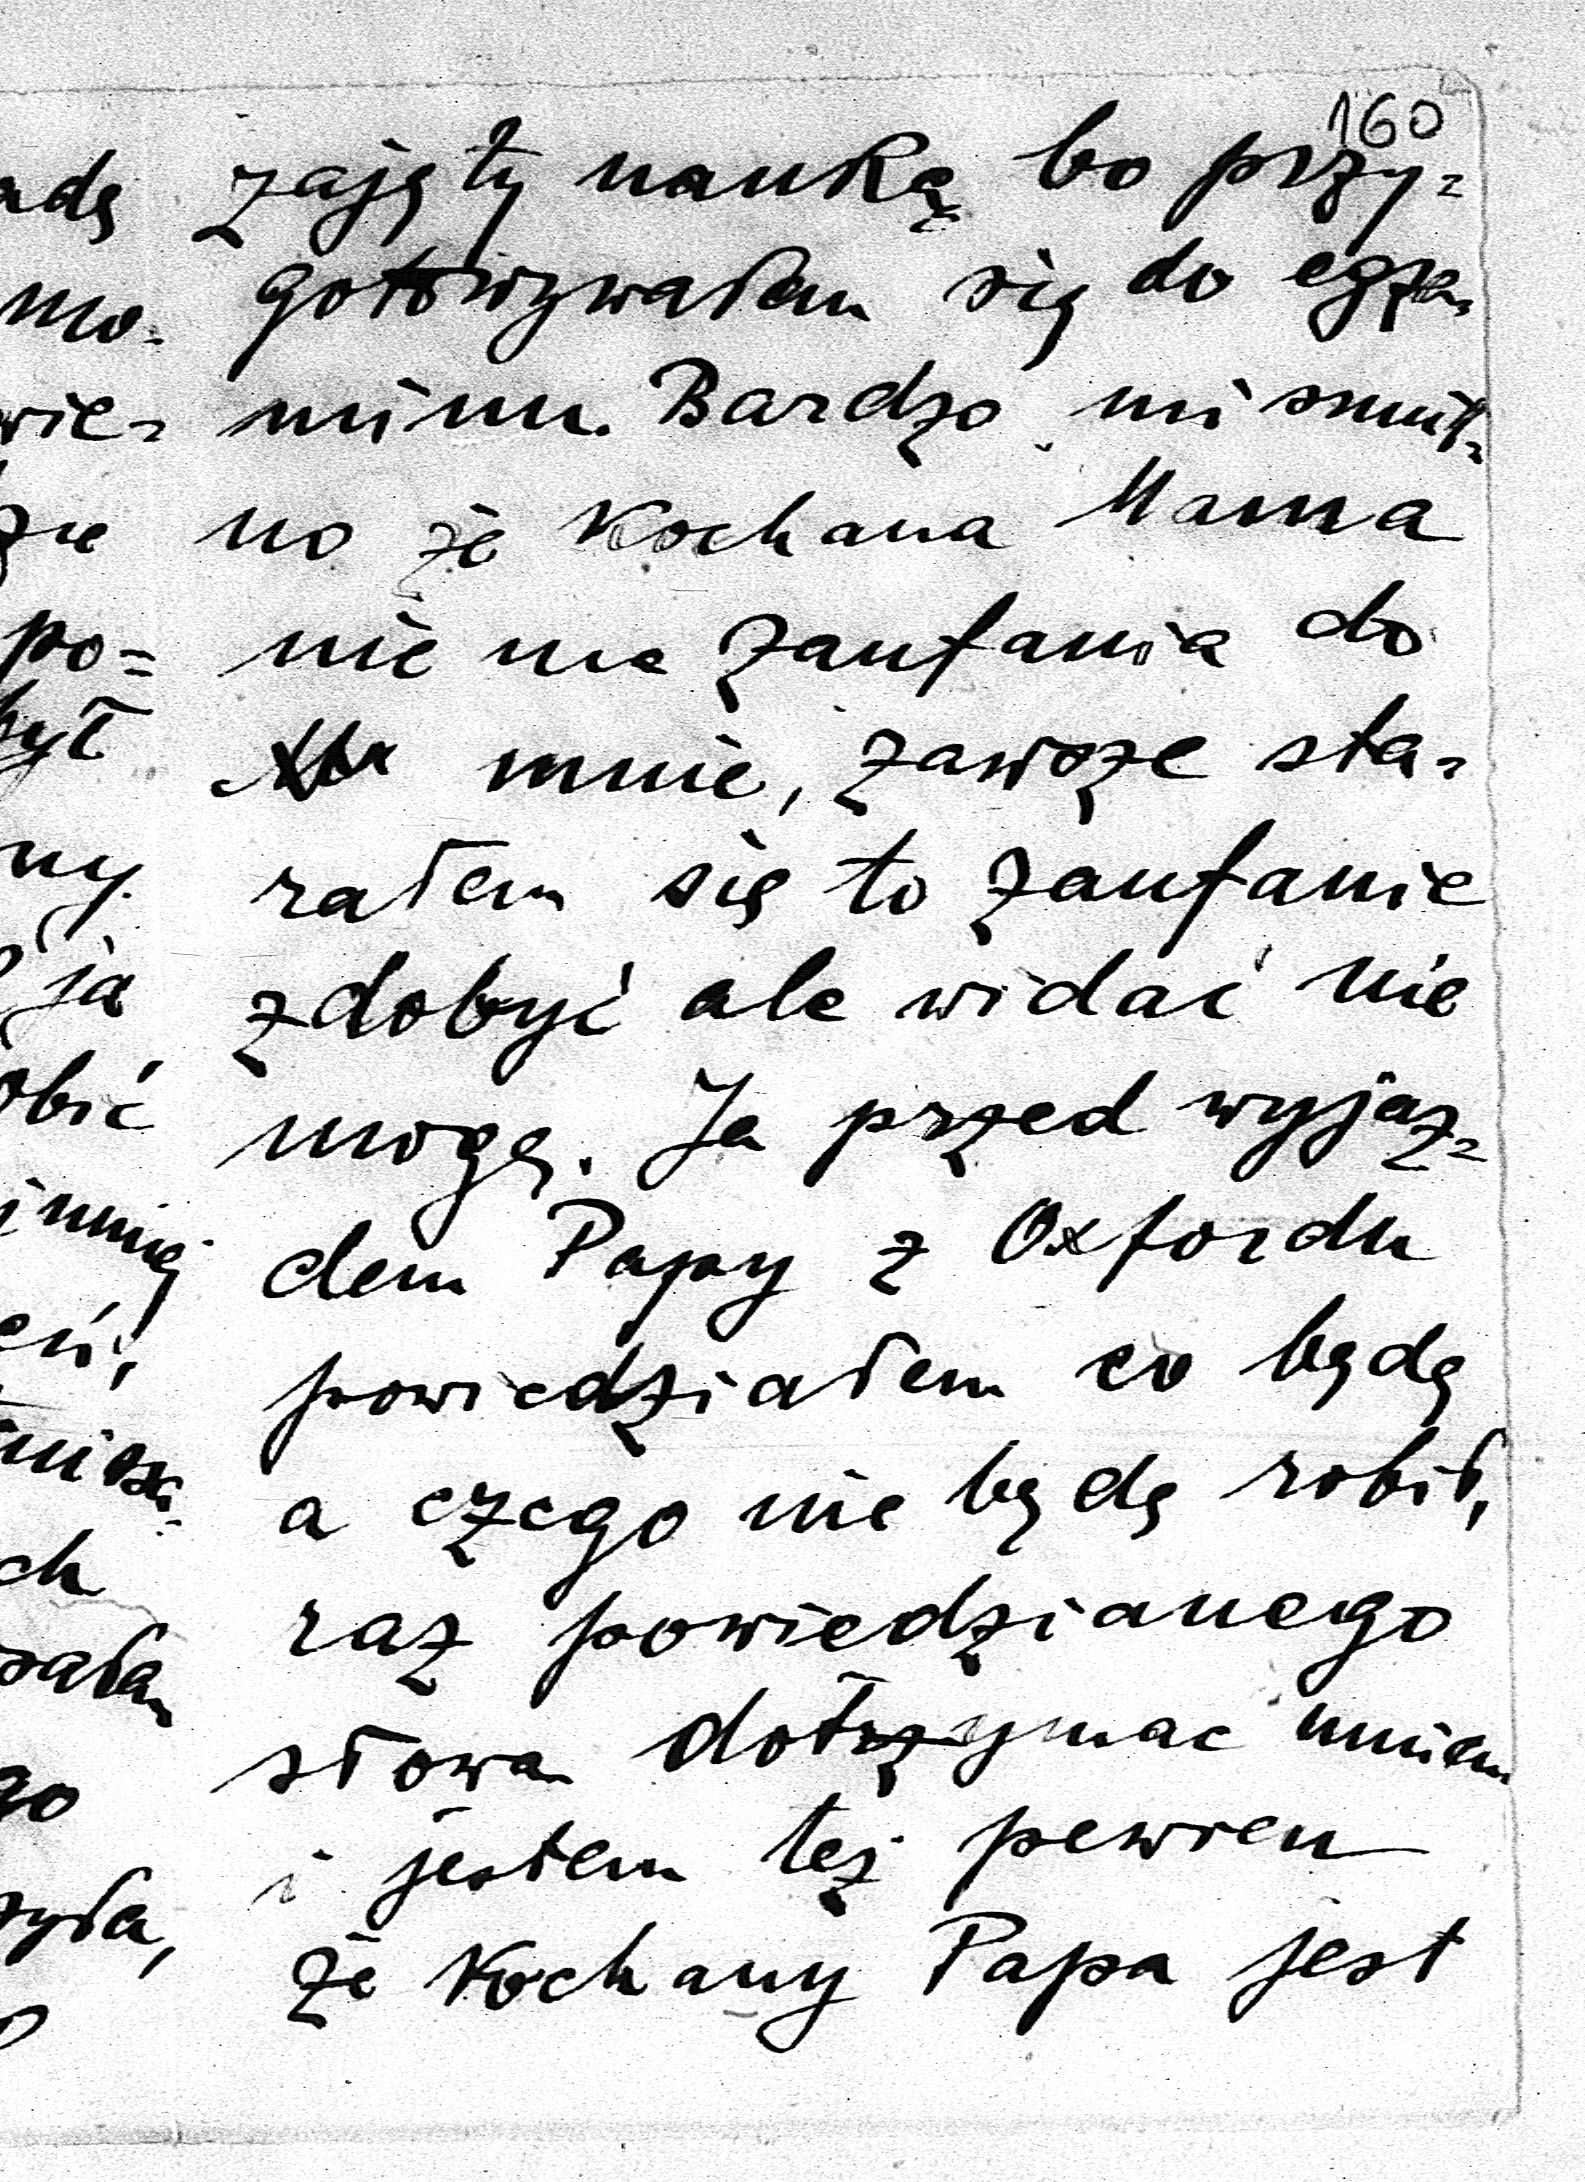 160
zajęty nauką bo przy=
gotowywałem się do egza=
minu. Bardzo mi smut=
no że Kochana Mama
nie ma zaufania do
mnie, zawsze sta=
rałem się to zaufanie
zdobyć ale widać nie
mogę. Ja przed wyjaz=
dem Papy z Oxfordu
powiedziałem co będę
a czego nie będę robił,
raz powiedzianego
słowa dotrzymac umiem
i jestem też pewien
że Kochany Papa jest